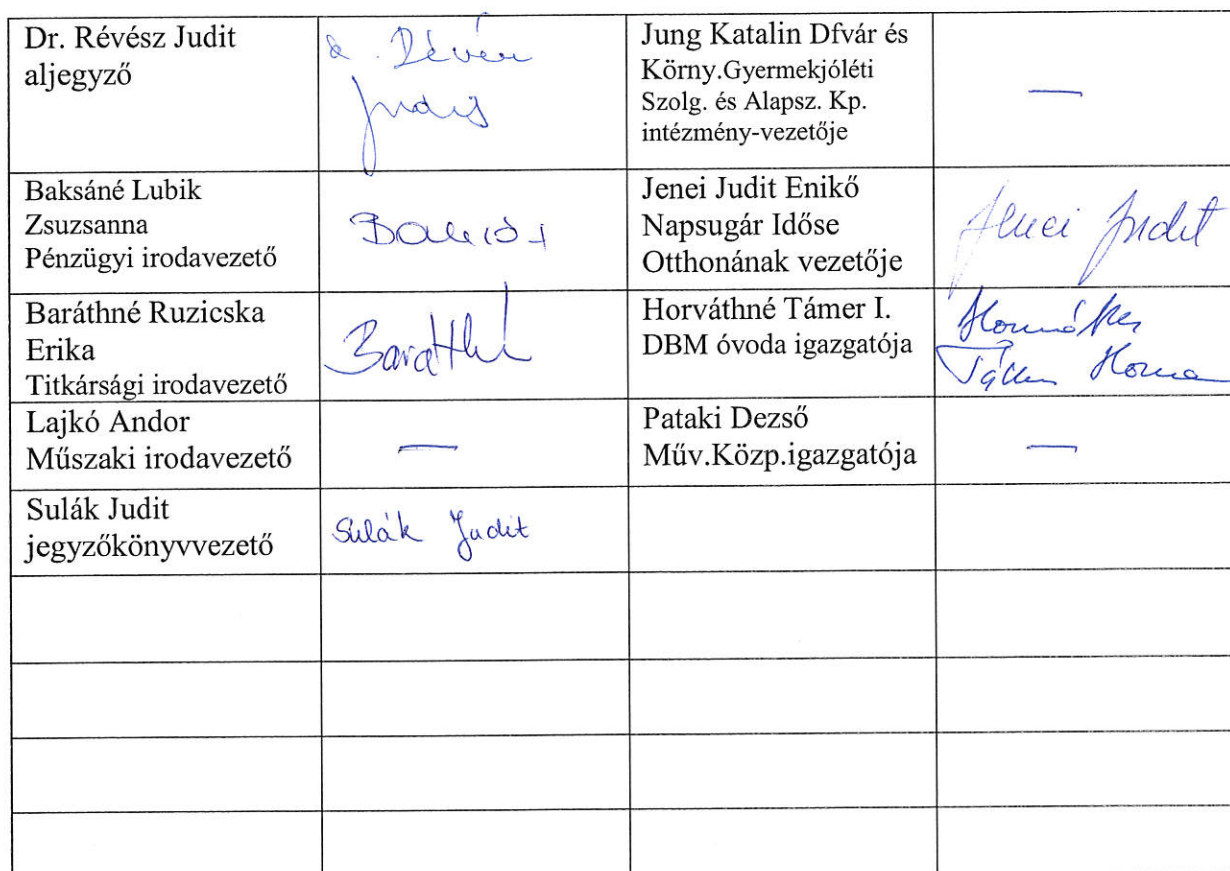 Dr. Révész Judit
aljegyző
Judit
Jung Katalin Dfvár és
Körny.Gyermekjóléti
Szolg. és Alapsz. Kp.
intézmény-vezetője
—
Baksáné Lubik
Zsuzsanna
Pénzügyi irodavezető
Jenei Judit Enikő
Napsugár Időse
Otthonának vezetője
Jenei Judit
Baráthné Ruzicska
Erika
Titkársági irodavezető
Horváthné Támer I.
DBM óvoda igazgatója
Lajkó Andor
Műszaki irodavezető
—
Pataki Dezső
Műv.Közp.igazgatója
—
Sulák Judit
jegyzőkönyvvezető
Sulák Judit